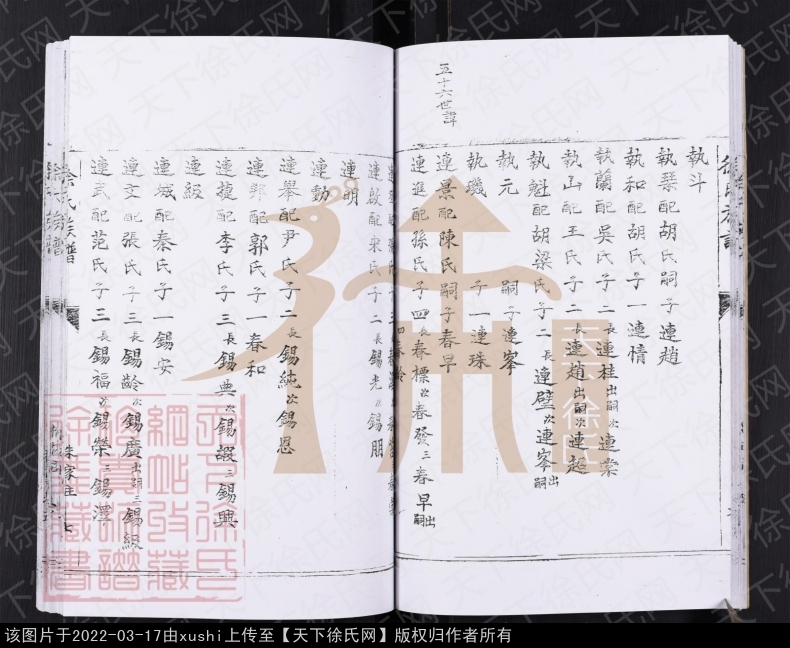 五十六世諱
執斗
執琹配胡氏嗣子連趙
執和配胡氏子一連情
執蘭配吳氏子二長連桂出嗣次連棠
執山配王氏子二長連趙出嗣次連起
執魁配胡梁氏子二長連壁次連峯出嗣
執元 嗣子連峯
執璣 子一連珠
連景配陳氏嗣子春早
連進配孫氏子四長春標次春發三春早出嗣
四春齡
連啟配宋氏子二長錫光次錫朋
連明
連動
連舉配尹氏子二長錫純次錫恩
連郡配郭氏子一春和
連捷配李氏子三長錫典次錫嘏三錫興
連級
連城配秦氏子一錫安
連文配張氏子三長錫齡次錫廣出嗣三錫經
連武配范氏子三長錫福次錫榮三錫澤
徐氏族譜
朱家庄
天下徐氏网
天下徐氏
网站收藏
该图片于2022-03-17由xushi上传至【天下徐氏网】版权归作者所有